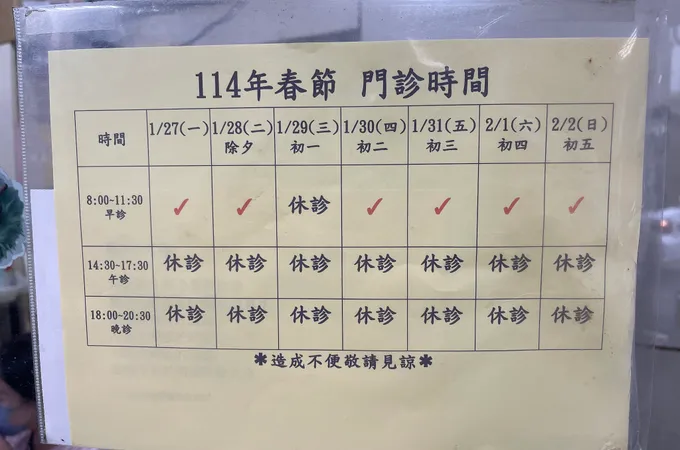 114年春節 門診時間
時間 1/27(一) 1/28(二) 除夕 1/29(三) 初一 1/30(四) 初二 1/31(五) 初三 2/1(六) 初四 2/2(日) 初五
8:00~11:30 早診 ✓ ✓ 休診 ✓ ✓ ✓ ✓
14:30~17:30 午診 休診 休診 休診 休診 休診 休診 休診
18:00~20:30 晚診 休診 休診 休診 休診 休診 休診 休診
✱造成不便敬請見諒✱